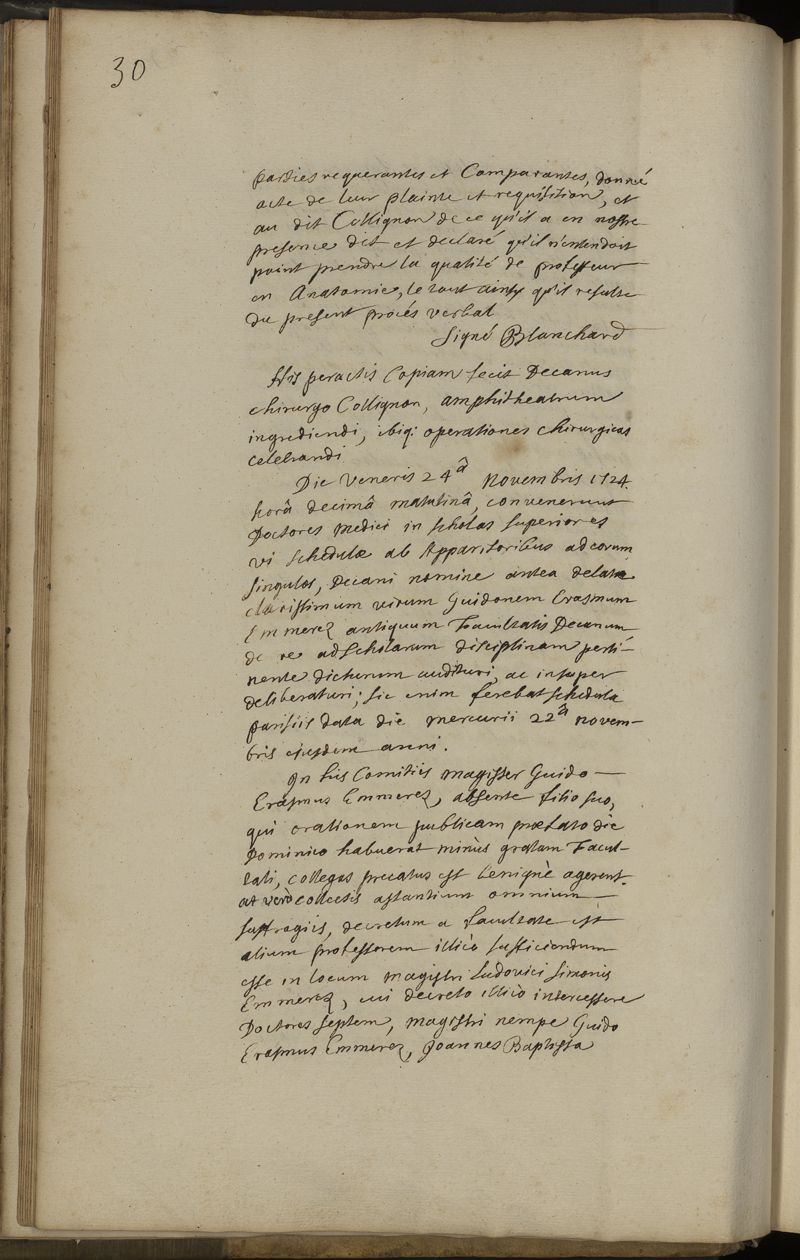 30
parties requerantes et Comparantes, donné
acte de leur plainte et requisition, et
au dit Collignon de ce qu'il a en nostre
presence dit et declaré qu'il n'entendoit
point prendre la qualité de professeur
en Anatomie, le tout ainsy qu'il resulte
du present procés verbal
Signé Blanchard
His peractis Copiam fecit Decanus
chirurgo Collignon, amphitheatrum
ingrediendi, ibiq; operationes chirurgicas
celebrandi
Die Veneris 24â Novembris 1724
horâ decimâ matutinâ, convenerunt
Doctores Medici in scholas superiores
vi schedulæ ab Apparitoribus ad eorum
singulos, Decani nomine antea delatæ
clarissimum virum Guidonem Erasmum
Emmerez antiquum Facultatis Decanum
de re ad scholarum disciplinam perti-
nente dicturum audituri, ac insuper
deliberaturi; sic enim ferebat schedula
parisiis data die mercurii 22â novem-
bris ejusdem anni.
In his Comitiis magister Guido
Erasmus Emmerez, absente filio suo,
qui orationem publicam præfato die
Dominico habuerat minùs gratam Facul-
tati, collegas precatus est benignè agerent.
at verò collectis astantium omnium
suffragiis, decretum a facultate est
alium professorem illicò sufficiendum
esse in locum magistri Ludovici Simonis
Emmerez, cui decreto illicò intercessere
Doctores septem, magistri nempe Guido
Erasmus Emmerez, Joannes Baptista